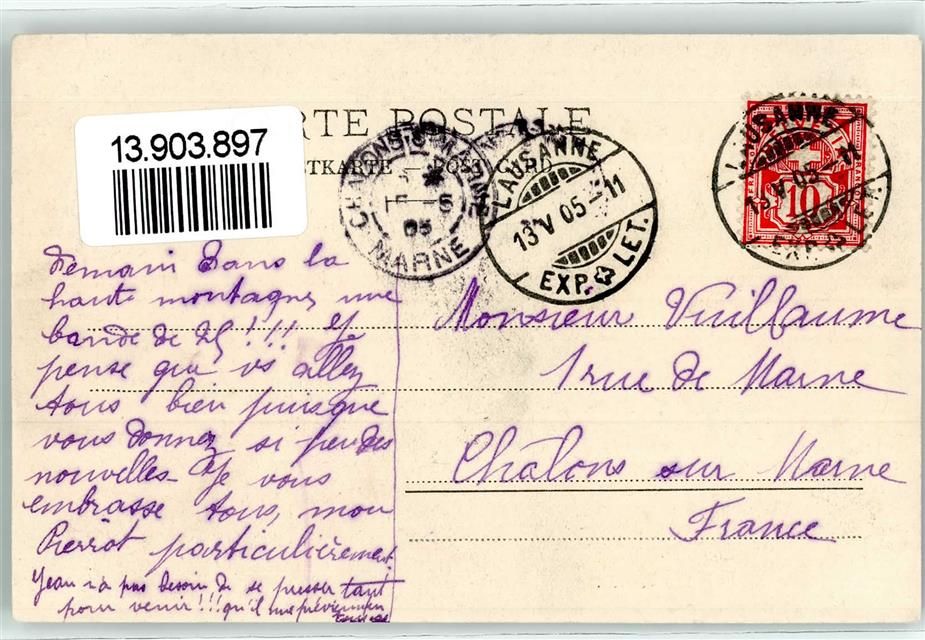 13.903.897
RTE POSTALE
STKARTE — POST CARD
CHALONS-SUR-MARNE
MARNE
05
LAUSANNE
13 V 05 - 11
EXP. LET.
LAUSANNE
13 V 05
EXP. LET.
10
demain dans la
haute montagnes une
bande de 25!!! Je
pense que vs allez
tous bien puisque
vous donnez si peu des
nouvelles - Je vous
embrasse tous, mon
Pierrot particulièrement.
Jean n'a pas besoin de se presser tant
pour venir!!! qu'il me prévienne
Monsieur Vuillaume
1 rue de Marne
Châlons sur Marne
France